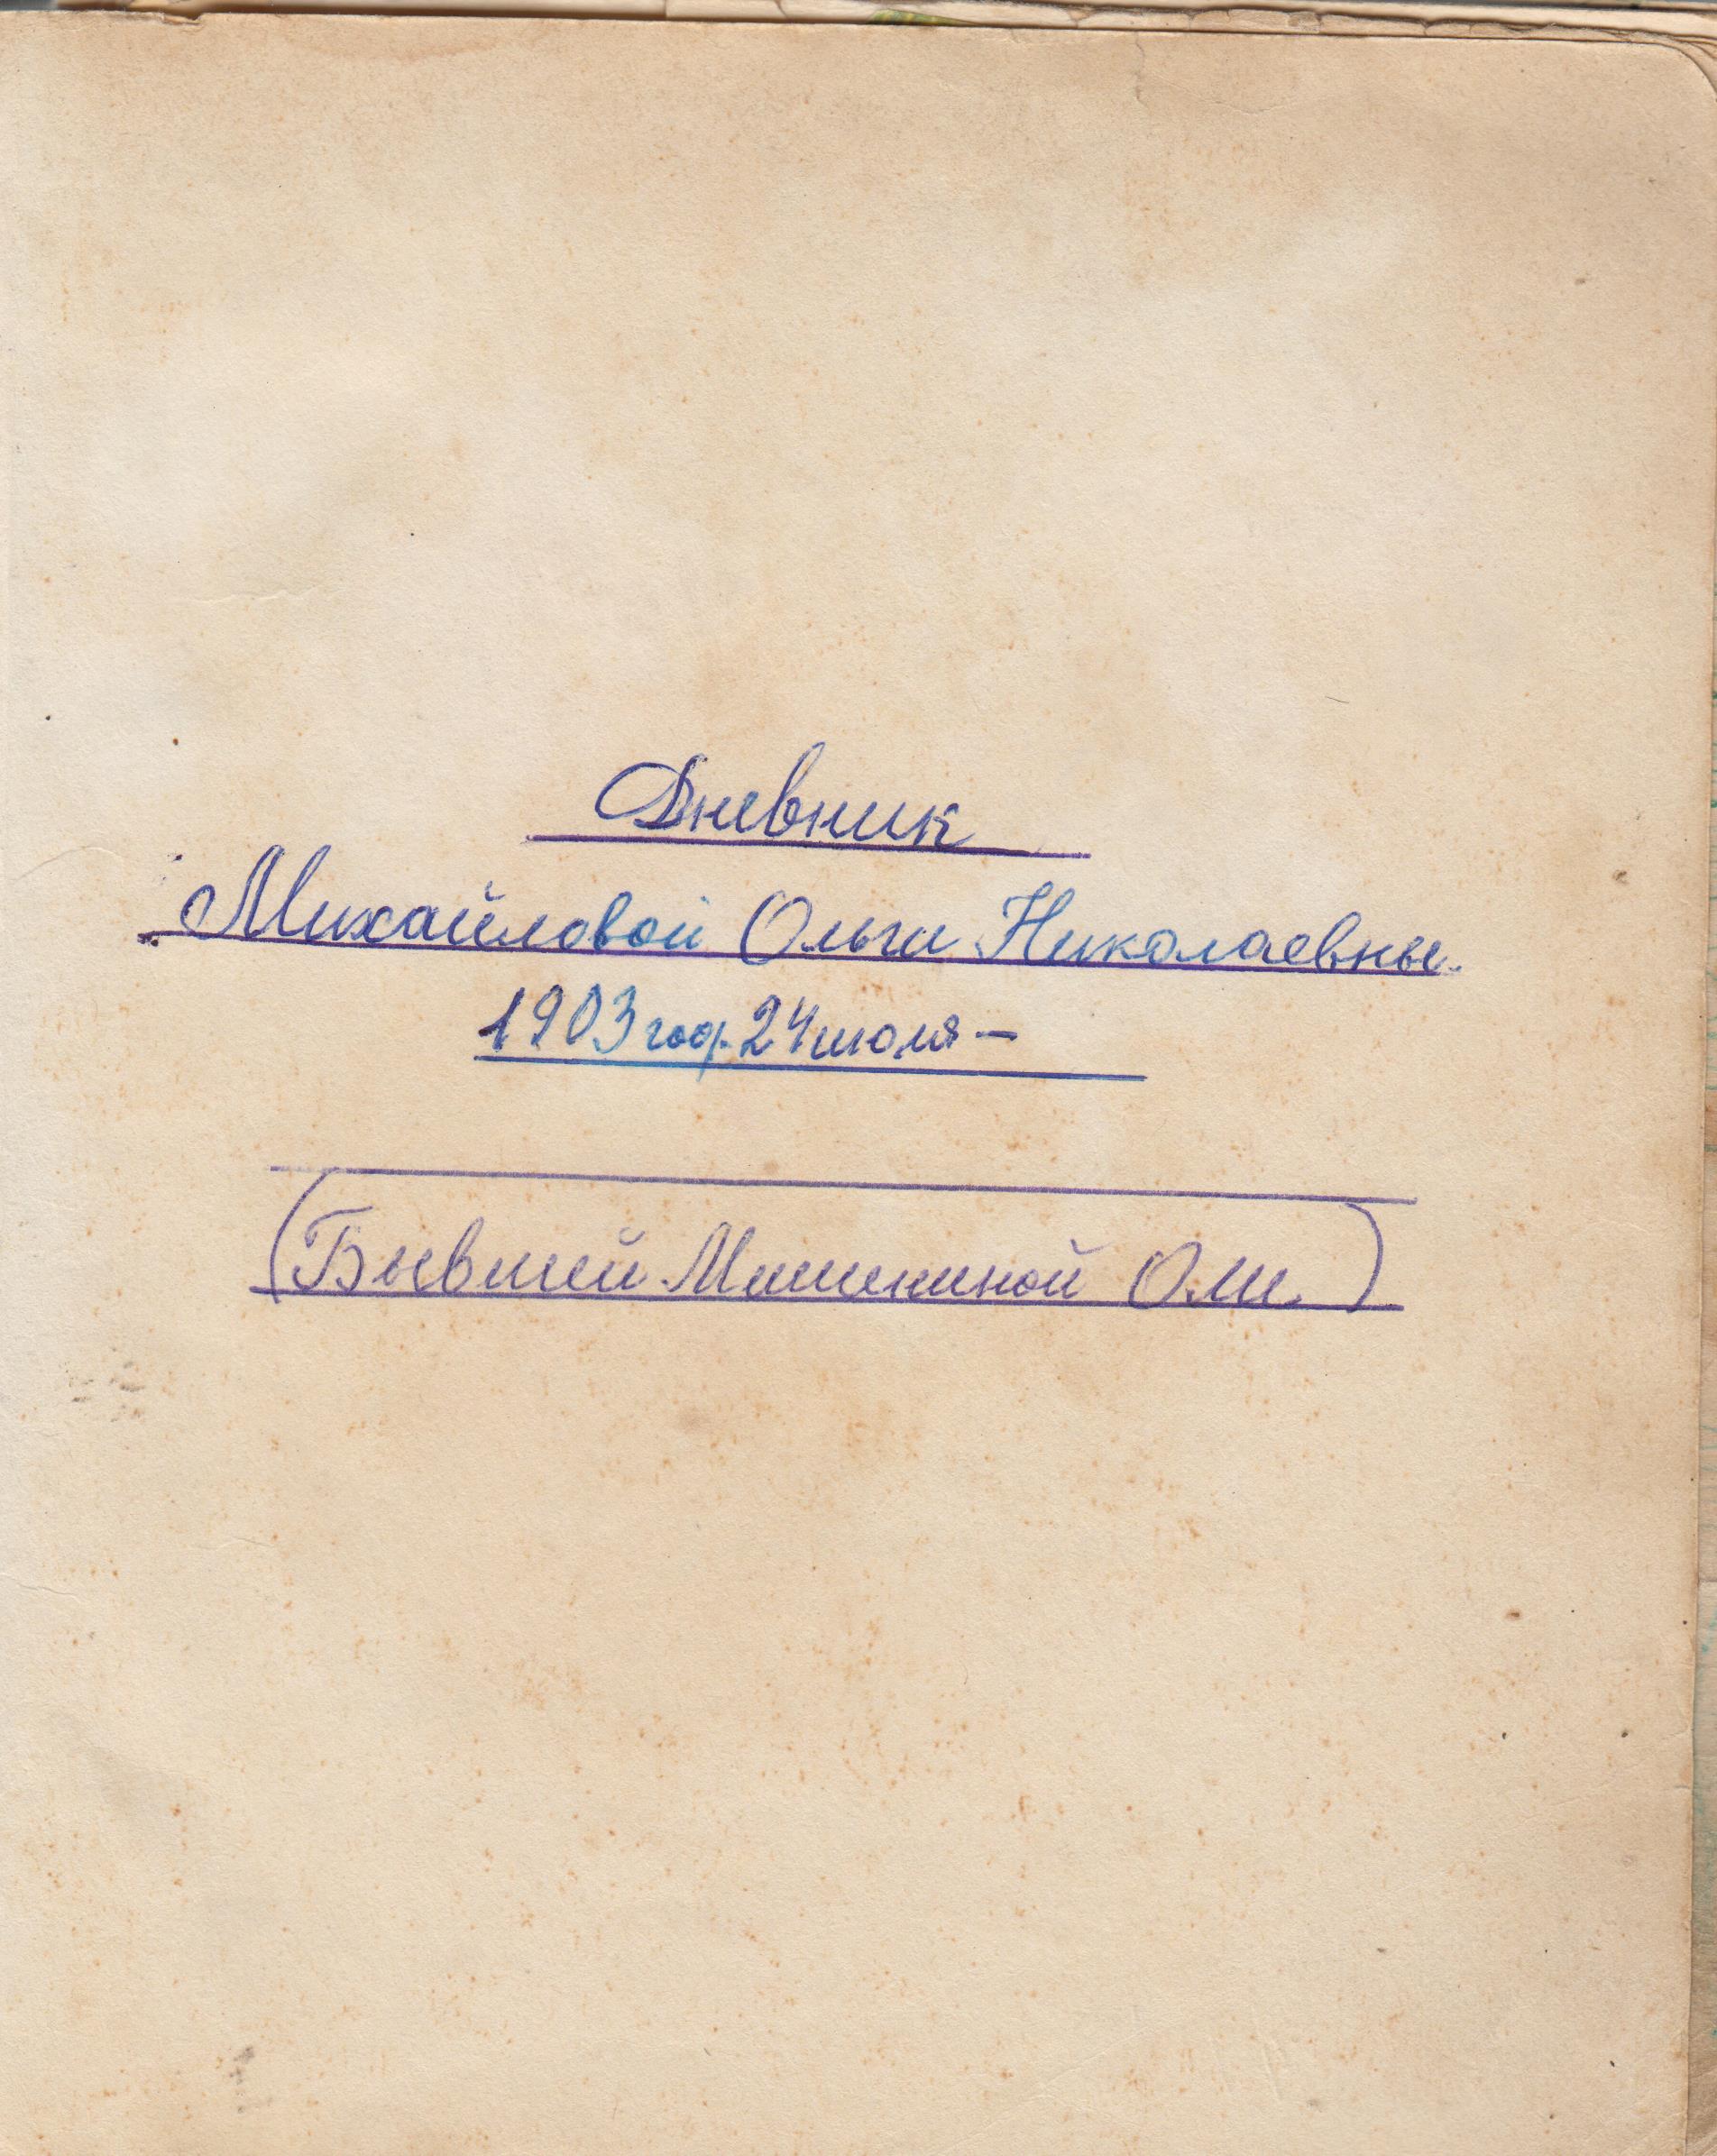 Дневник
Михайловой Ольги Николаевны.
1903 год. 24 июля –
(Бывшей Мишениной Оли.)